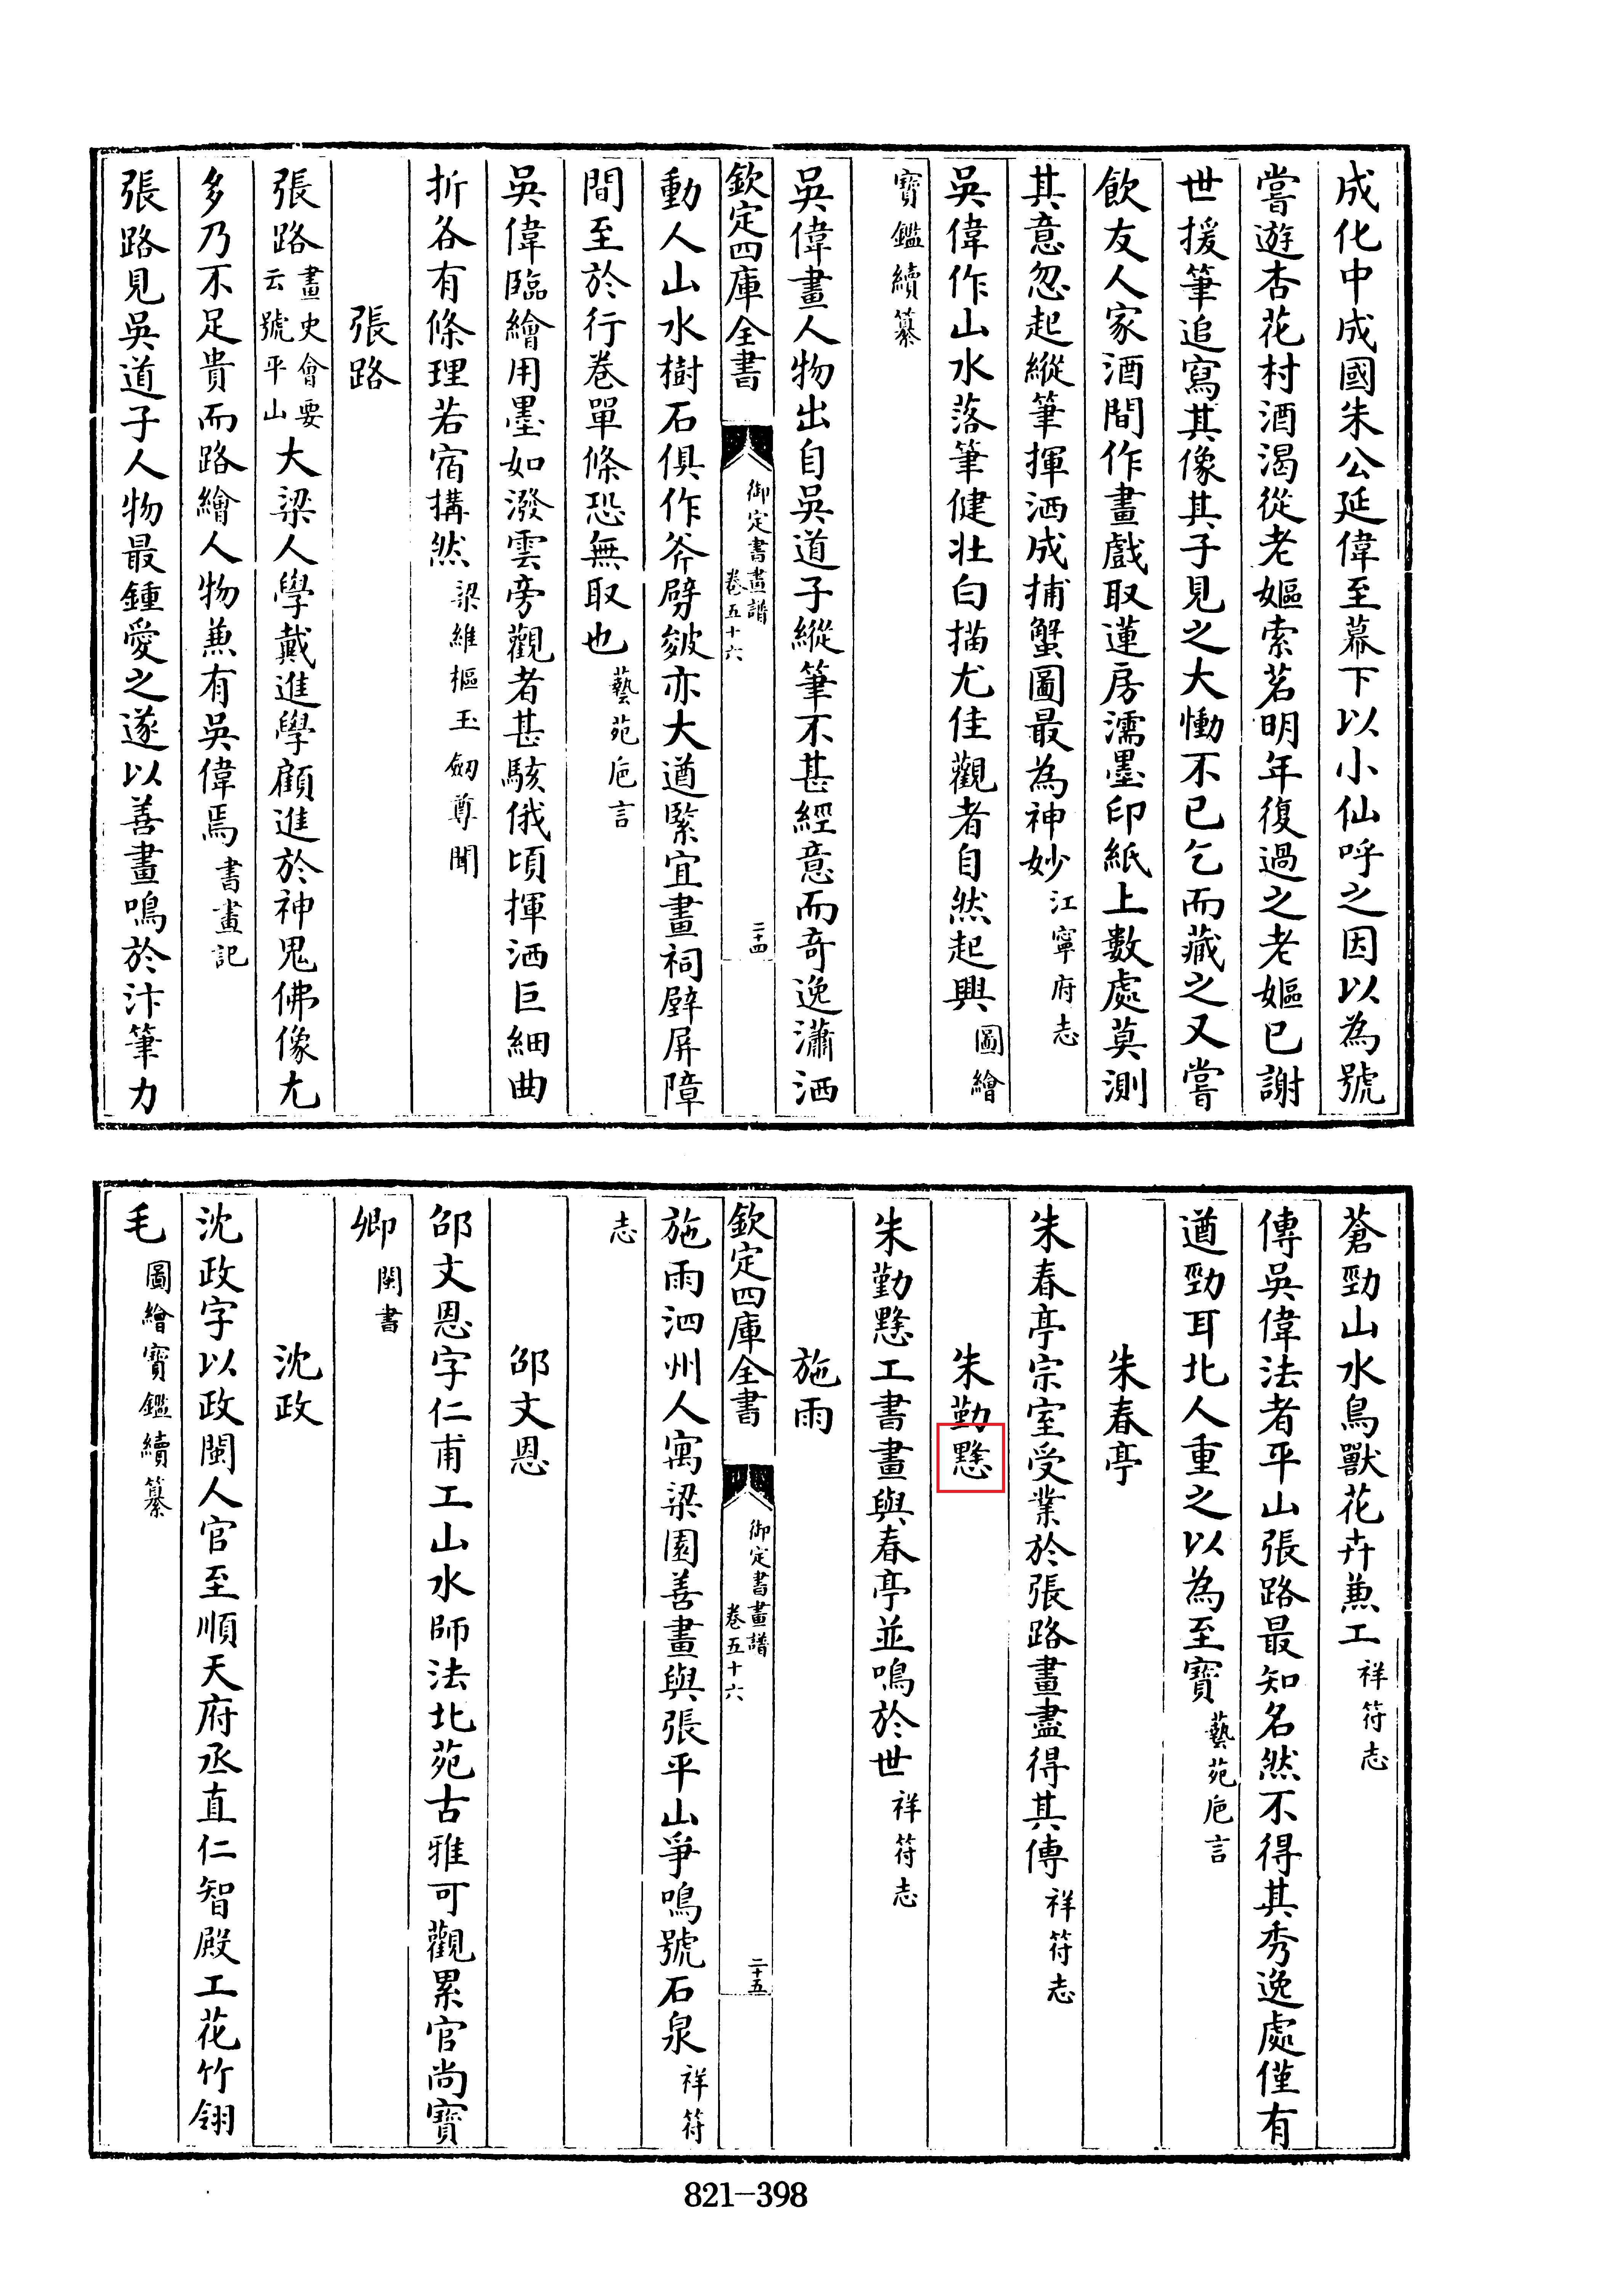 成化中成國朱公延偉至幕下以小仙呼之因以為號
嘗遊杏花村酒渴從老嫗索茗明年復過之老嫗已謝
世援筆追寫其像其子見之大慟不已乞而藏之又嘗
飲友人家酒間作畫戲取蓮房濡墨印紙上數處莫測
其意忽起縱筆揮洒成捕蟹圖最為神妙江寧府志
吳偉作山水落筆健壯白描尤佳觀者自然起興圖繪
寶鑑續纂
吳偉畫人物出自吳道子縱筆不甚經意而奇逸瀟洒
欽定四庫全書
御定書畫譜
卷五十六
二十四
動人山水樹石俱作斧劈皴亦大遒緊宜畫祠壁屏障
間至於行卷單條恐無取也藝苑巵言
吳偉臨繪用墨如潑雲旁觀者甚駭俄頃揮洒巨細曲
折各有條理若宿搆然梁維樞玉劒尊聞
張路
張路畫史會要云號平山大梁人學戴進學顧進於神鬼佛像尤
多乃不足貴而路繪人物兼有吳偉焉書畫記
張路見吳道子人物最鍾愛之遂以善畫鳴於汴筆力
蒼勁山水鳥獸花卉兼工祥符志
傳吳偉法者平山張路最知名然不得其秀逸處僅有
遒勁耳北人重之以為至寶藝苑巵言
朱春亭
朱春亭宗室受業於張路畫盡得其傳祥符志
朱勤
朱勤工書畫與春亭並鳴於世祥符志
施雨
欽定四庫全書
御定書畫譜
卷五十六
二十五
施雨泗州人寓梁園善畫與張平山爭鳴號石泉祥符
志
邵文恩
邵文恩字仁甫工山水師法北苑古雅可觀累官尚寶
卿閩書
沈政
沈政字以政閩人官至順天府丞直仁智殿工花竹翎
毛圖繪寶鑑續纂
821-398